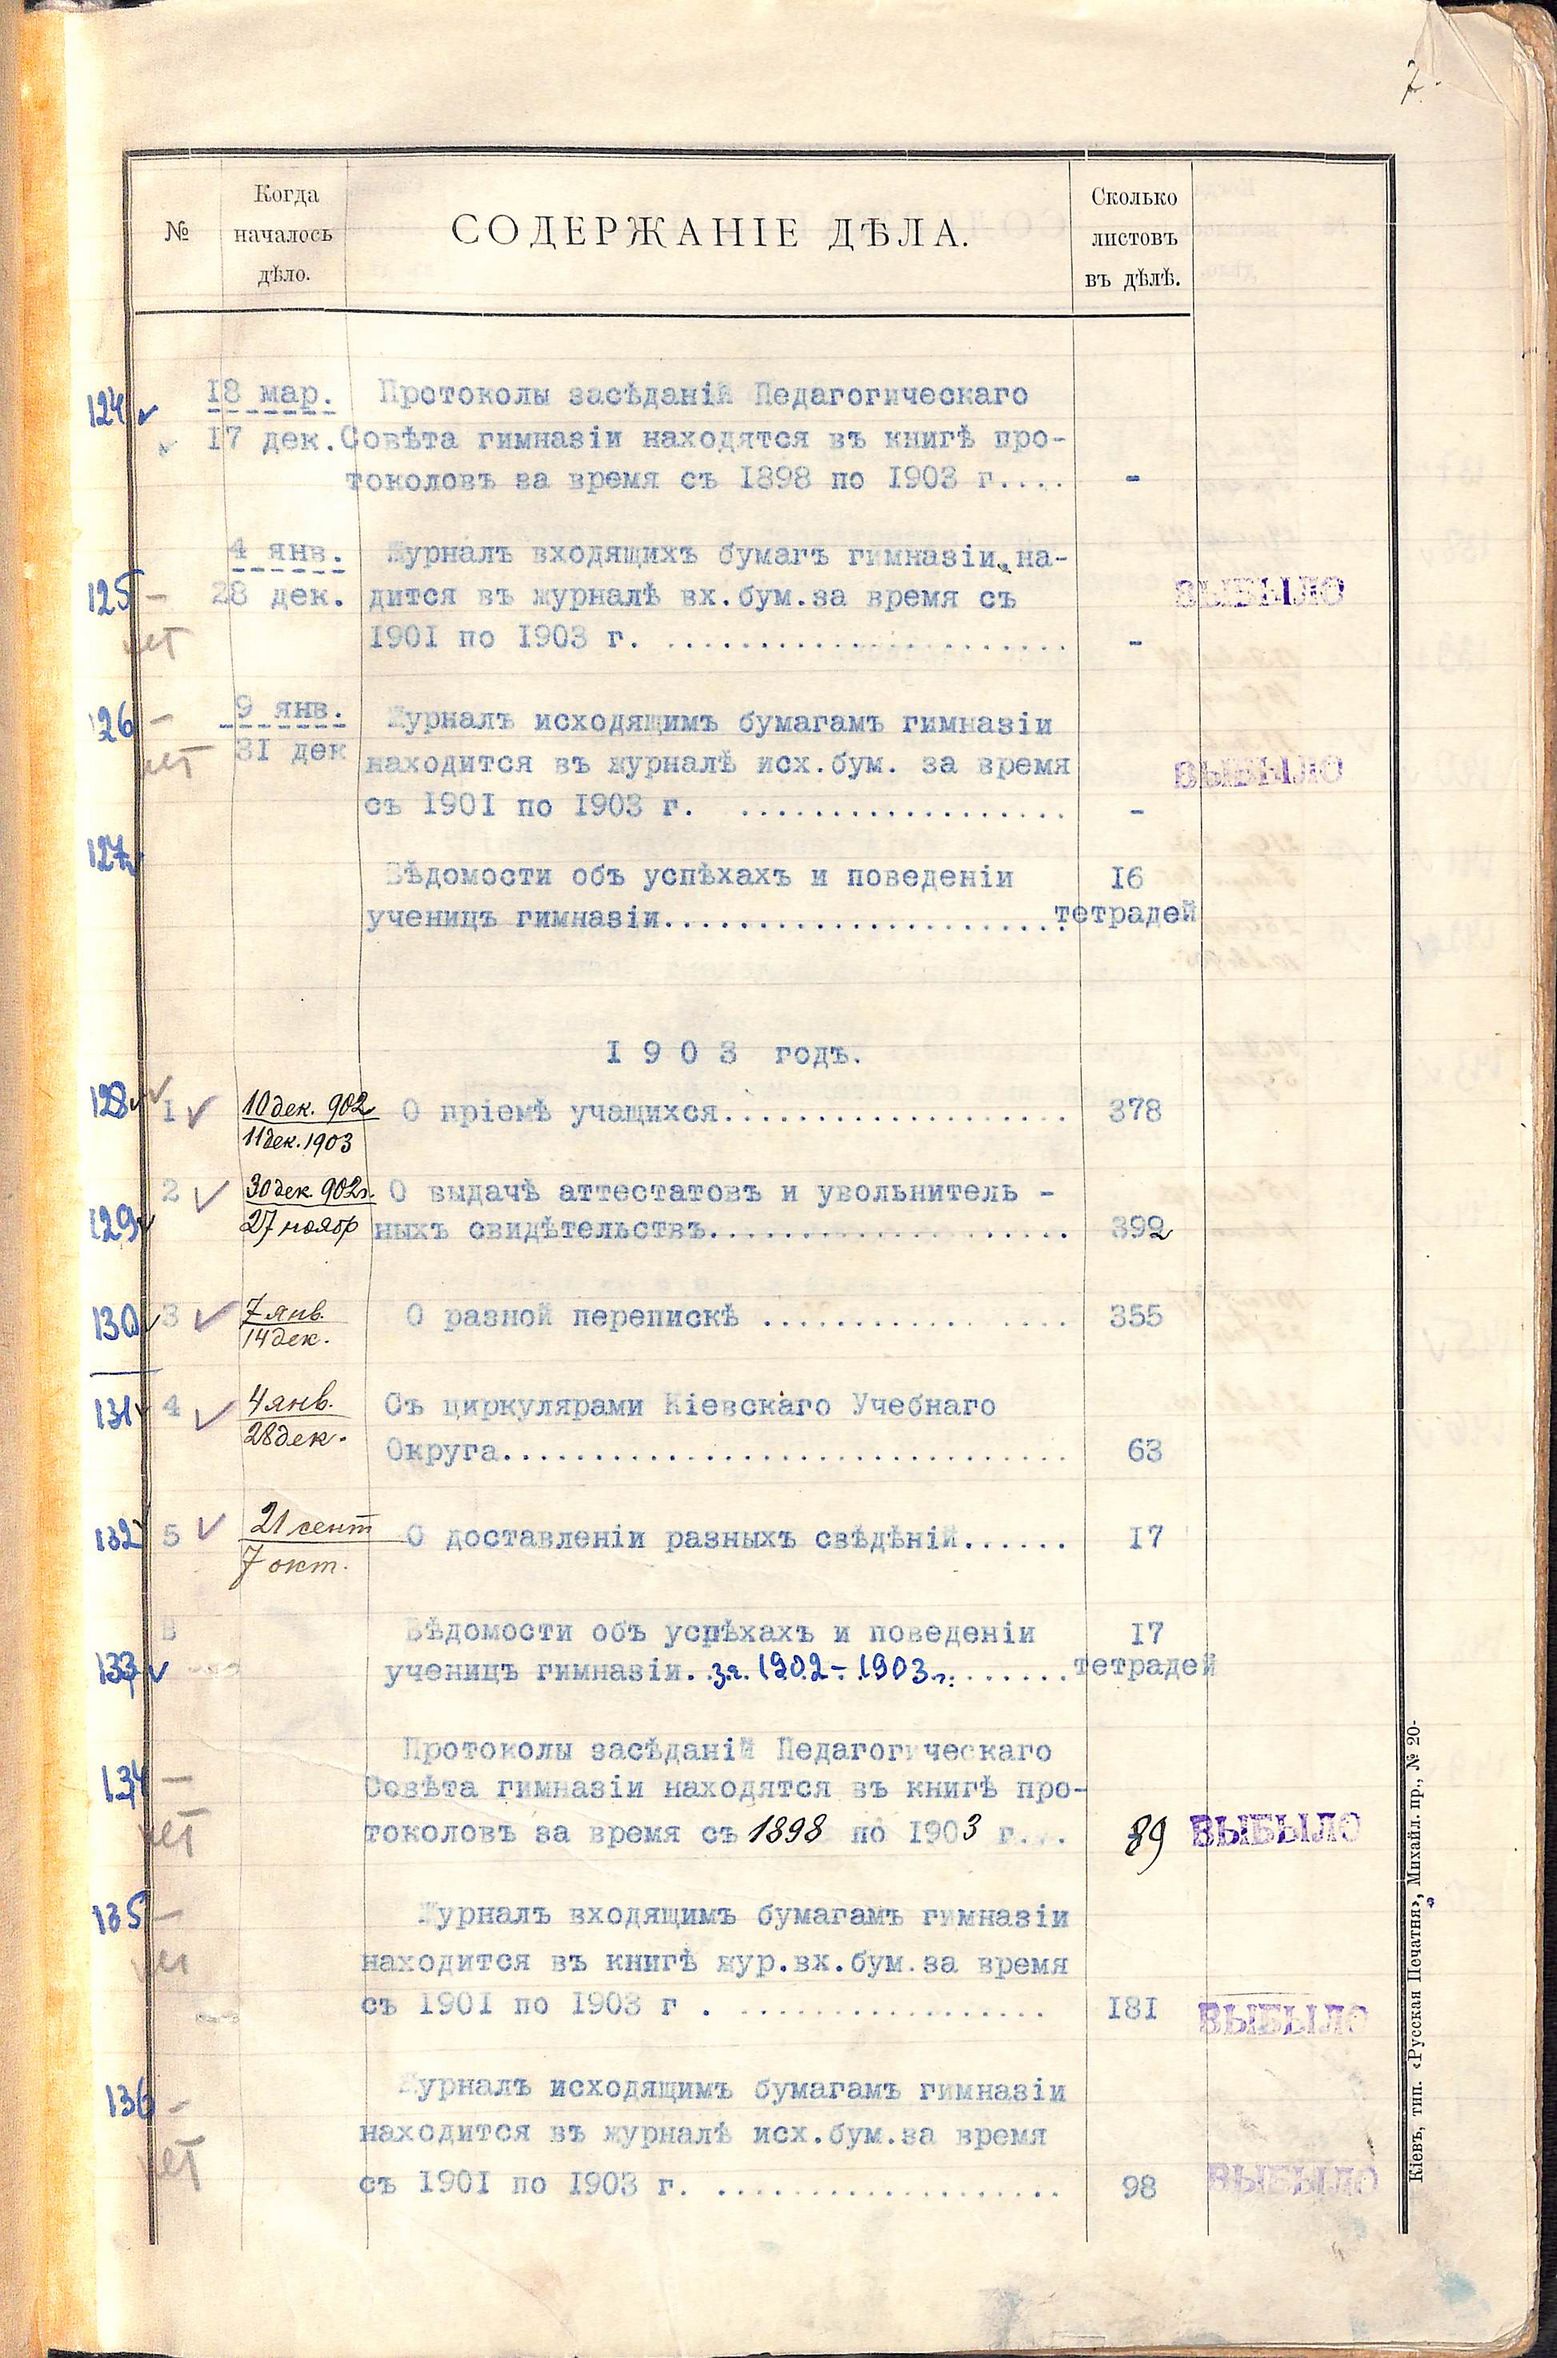 7.
№
Когда
началось
дѣло.
СОДЕРЖАНІЕ ДѢЛА.
Сколько
листовъ
въ дѣлѣ.
124 18 мар. Протоколы засѣданій Педагогическаго
17 дек. Совѣта гимназіи находятся въ книгѣ про-
токоловъ за время съ 1898 по 1903 г.... -
4 янв. Журналъ входящихъ бумагъ гимназіи на-
125 - 28 дек. дится въ журналѣ вх.бум.за время съ ВЫБЫЛО
нет 1901 по 1903 г. ...................... -
126 - 9 янв. Журналъ исходящимъ бумагамъ гимназіи
нет 31 дек находится въ журналѣ исх.бум. за время ВЫБЫЛО
съ 1901 по 1903 г. .................. -
127
Вѣдомости объ успѣхахъ и поведеніи 16
ученицъ гимназіи...................... тетрадей
1 9 0 3 годъ.
128 1 10 дек. 902 О пріемѣ учащихся................... 378
11 дек. 1903
2 30 дек. 902г. О выдачѣ аттестатовъ и увольнитель -
129 27 нояб ныхъ свидѣтельствъ.................... 392
130 3 7 янв. О разной перепискѣ ................. 355
14 дек.
131 4 4 янв. Съ циркулярами Кіевскаго Учебнаго
28 дек. Округа............................... 63
132 5 21 сент О доставленіи разныхъ свѣдѣній...... 17
7 окт.
Вѣдомости объ успѣхахъ и поведеніи 17
133 ученицъ гимназіи. за 1902-1903 г. ...... тетрадей
Протоколы засѣданій Педагогическаго
134 - Совѣта гимназіи находятся въ книгѣ про-
нет токоловъ за время съ 1898 по 1903 г... 89 ВЫБЫЛО
135 - Журналъ входящимъ бумагамъ гимназіи
нет находится въ книгѣ жур.вх.бум.за время
съ 1901 по 1903 г . ................. 181 ВЫБЫЛО
136 - Журналъ исходящимъ бумагамъ гимназіи
нет находится въ журналѣ исх.бум.за время
съ 1901 по 1903 г. ................... 98 ВЫБЫЛО
Кіевъ, тип. «Русская Печатня», Михайл. пр., № 20-